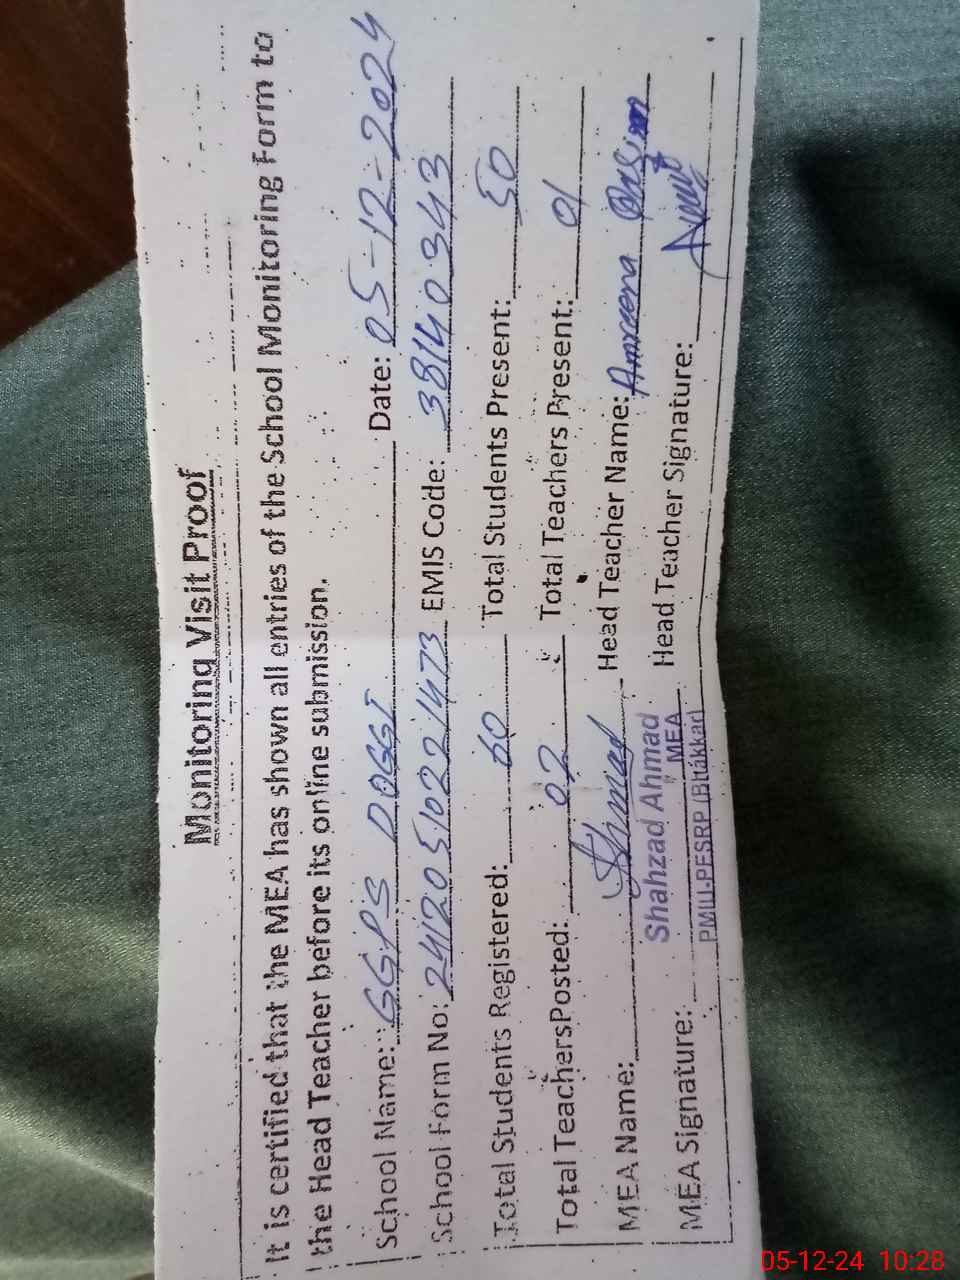 Monitoring Visit Proof
It is certified that the MEA has shown all entries of the School Monitoring Form to
the Head Teacher before its online submission.
School Name: GGPS DOGGI Date: 05-12-2024
School Form No: 24120510221473 EMIS Code: 38140343
Total Students Registered: 60 Total Students Present: 50
Total TeachersPosted: 02 Total Teachers Present: 01
MEA Name: Head Teacher Name:
Shahzad Ahmad
MEA
MEA Signature: Head Teacher Signature:
PMIU-PESRP (Bhakkar)
05-12-24 10:28